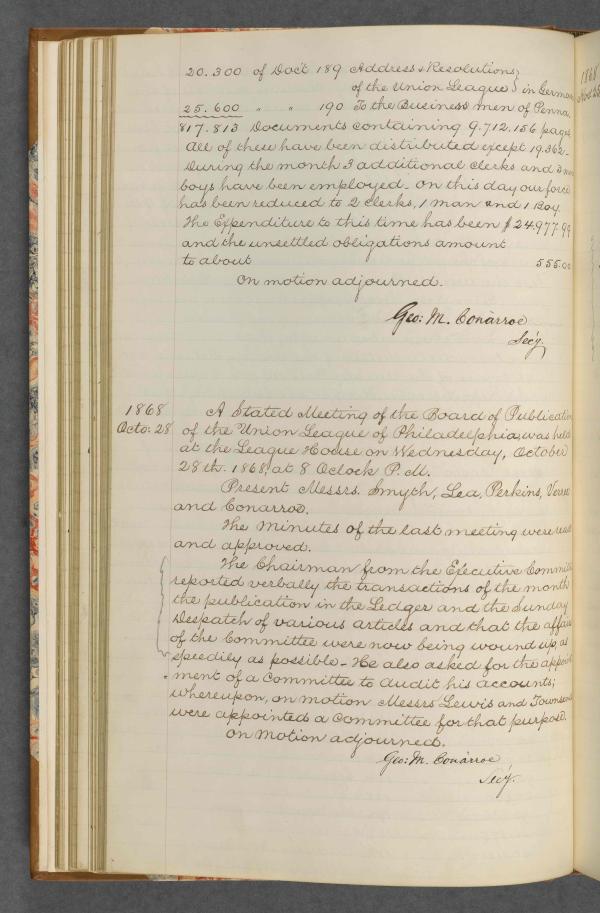 20.300 of Doc't 189 Address & Resolutions
of the Union League } in German
25.600 " " 190 To the Business men of Penna.
817.813 Documents containing 9.712.156 pages
All of these have been distributed except 19.362 -
During the month 3 additional clerks and
boys have been employed. On this day our force
has been reduced to 2 clerks, 1 man and 1 Boy
The Expenditure to this time has been $24,977.99
and the unsettled obligations amount
to about 555.00
On motion adjourned.
Geo: M. Conarroe
Sec'y.
1868
Octo: 28
A Stated Meeting of the Board of Publication
of the Union League of Philadelphia, was held
at the League House on Wednesday, October
28th. 1868, at 8 Oclock P.M.
Present Messrs. Smyth, Lea, Perkins, Veree
and Conarroe.
The Minutes of the last meeting were read
and approved.
The Chairman from the Executive Committee
reported verbally the transactions of the month
the publication in the Ledger and the Sunday
Despatch of various articles and that the affairs
of the Committee were now being wound up, as
speedily as possible - He also asked for the appoint
ment of a Committee to Audit his accounts;
whereupon, on motion Messrs Lewis and Townsend
were appointed a Committee for that purpose.
On motion adjourned.
Geo: M. Conarroe
Sec'y.
1868